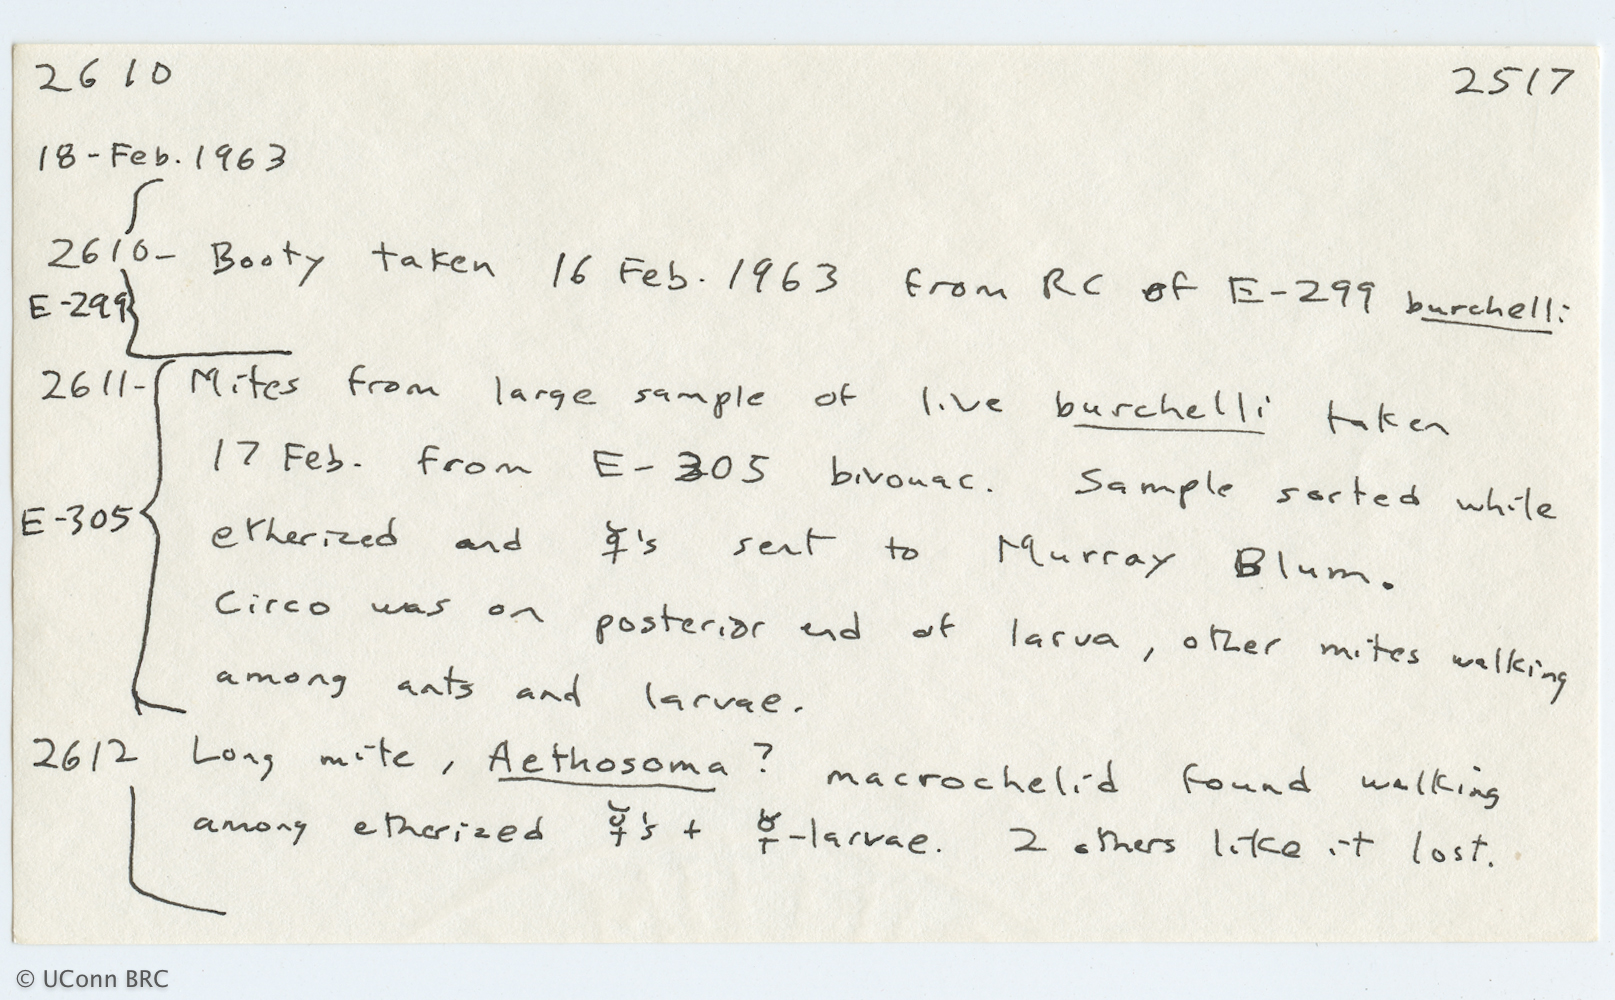 2610 2517
18-Feb. 1963
2610- Booty taken 16 Feb. 1963 from RC of E-299 burchelli
E-299
2611- Mites from large sample of live burchelli taken
17 Feb. from E-305 bivouac. Sample sorted while
E-305 etherized and ☿'s sent to Murray Blum.
Circo was on posterior end of larva, other mites walking
among ants and larvae.
2612 Long mite, Aethosoma? macrochelid found walking
among etherized ☿'s + ☿-larvae. 2 others like it lost.
© UConn BRC